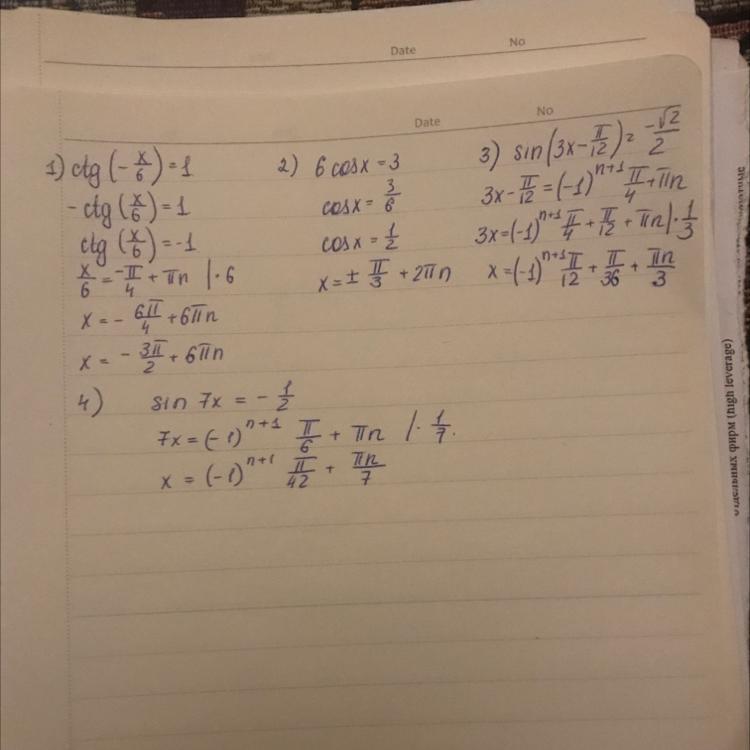 Date No
Date No
1) ctg(-x/6)=1
-ctg(x/6)=1
ctg(x/6)=-1
x/6=-π/4+πn |·6
x=-6π/4+6πn
x=-3π/2+6πn
2) 6cosx=3
cosx=3/6
cosx=1/2
x=±π/3+2πn
3) sin(3x-π/12)=-√2/2
3x-π/12=(-1)^n+1 π/4+πn
3x=(-1)^n+1 π/4+π/12+πn|·1/3
x=(-1)^n+1 π/12+π/36+πn/3
4) sin 7x = -1/2
7x=(-1)^n+1 π/6+πn |·1/7.
x=(-1)^n+1 π/42+πn/7
фирм (high leverage)